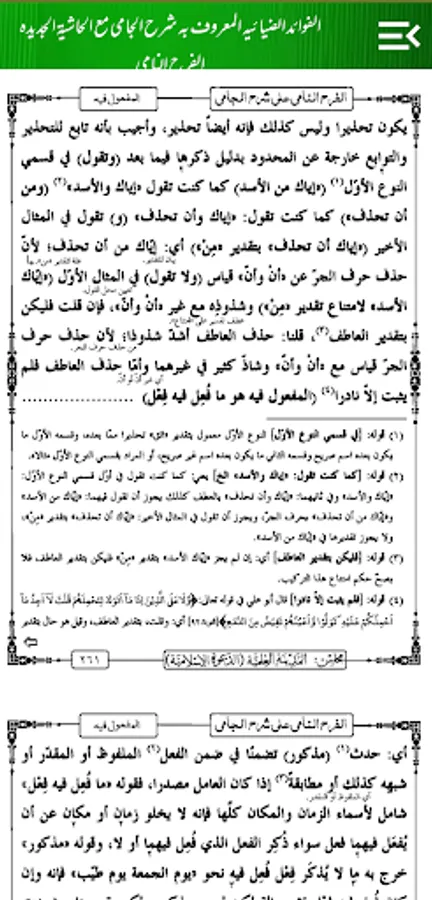 الفوائد الضيائيه المعروف به شرح الجامى مع الحاشية الجديده
الفرح النامى
الفرح النامي على شرح الجامي
المفعول فيه
يكون تحذيرا وليس كذلك فإنه أيضاً تحذير، وأجيب بأنه تابع للتحذير
والتوابع خارجة عن المحدود بدليل ذكرها فيما بعد (وتقول) في قسمي
النوع الأوّل(١) («إياك من الأسد») كما كنت تقول «إياك والأسد»(٢) (ومن
أن تحذف») كما كنت تقول: «إياك وأن تحذف» (و) تقول في المثال
الأخير («إياك أن تحذف» بتقدير «مِنْ») أي: إيّاك من أن تحذف؛ لأنّ
حذف حرف الجرّ عن «أنْ وأنّ» قياس (ولا تقول) في المثال الأوّل («إيّاك
الأسد» لامتناع تقدير «مِنْ») وشذوذه مع غير «أنْ وأنّ»، فإن قلت فليكن
بتقدير العاطف(٣)، قلنا: حذف العاطف أشدّ شذوذا؛ لأن حذف حرف
الجرّ قياس مع «أنْ وأنّ» وشاذّ كثير في غيرهما وأمّا حذف العاطف فلم
يثبت إلاّ نادرا(٤) (المفعول فيه هو ما فُعِل فيه فِعْل) ......................
(١) قوله: [في قسمي النوع الأوّل] النوع الأوّل معمول بتقدير «اتق» تحذيرا ممّا بعده، وقسمه الأوّل ما
يكون بعده اسم صريح وقسمه الثاني ما يكون بعده اسم غير صريح، أو المراد بقسمي النوع الأوّل مثالاه.
(٢) قوله: [كما كنت تقول: «إياك والأسد» الخ] يعني: كما كنت تقول في أوّل قسمي النوع الأوّل:
«إياك والأسد» وفي ثانيهما: «إياك وأن تحذف» بالعطف كذلك يجوز أن تقول فيهما: «إياك من الأسد»
و«إياك من أن تحذف» بحرف الجرّ، ويجوز أن تقول في المثال الأخير: «إياك أن تحذف» بتقدير «مِنْ»،
ولا يجوز تقديرها في «إياك من الأسد».
(٣) قوله: [فليكن بتقدير العاطف] أي: إن لم يجز «إياك الأسد» بتقدير «مِنْ» فليكن بتقدير العاطف فلا
يصحّ حكم امتناع هذا التركيب.
(٤) قوله: [فلم يثبت إلاّ نادرا] قال أبو علي في قوله تعالى: ﴿وَّلَا عَلَى الَّذِيْنَ اِذَا مَاۤ اَتَوْكَ لِتَحْمِلَهُمْ قُلْتَ لَاۤ اَجِدُ مَاۤ
اَحْمِلُكُمْ عَلَيْهِ تَوَلَّوْا وَّاَعْيُنُهُمْ تَفِيْضُ مِنَ الدَّمْعِ﴾ أي: وقلت، بتقدير العاطف، وقيل هو حال بتقدير
مجلس: المدينة العلمية (الدعوة الإسلامية)
٢٦١
الفرح النامي على شرح الجامي
المفعول فيه
أي: حدث(١) (مذكور) تضمنًا في ضمن الفعل(٢) الملفوظ أو المقدّر أو
شبهه كذلك أو مطابقةً(٣) إذا كان العامل مصدرا، فقوله «ما فُعِل فيه فِعْل»
شامل لأسماء الزمان والمكان كلّها فإنه لا يخلو زمان أو مكان عن أن
يُفعَل فيهما فعل سواء ذُكِر الفعل الذي فُعِل فيهما أو لا، وقوله «مذكور»
خرج به ما لا يُذكَر فِعْل فُعِل فيه نحو «يوم الجمعة يوم طيّب» فإنه وإن